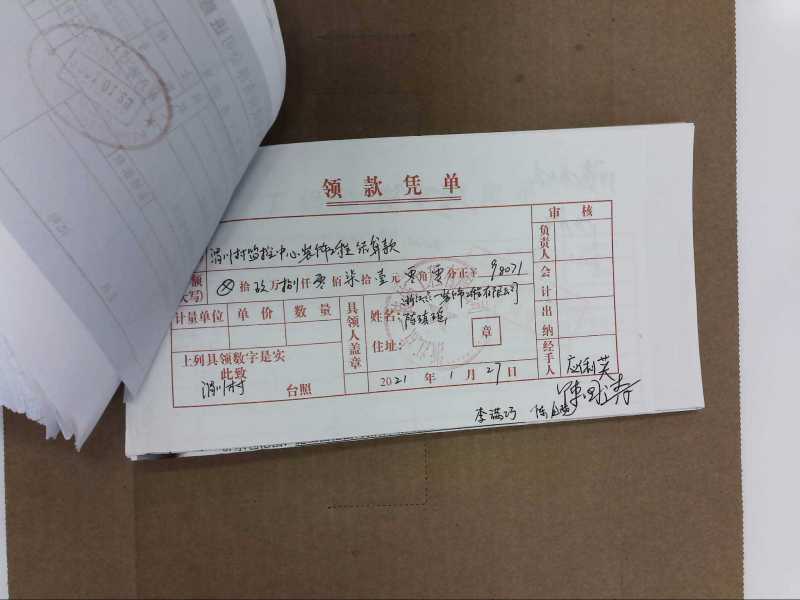 领款凭单
渭川村监控中心装饰工程结算款
额 ⊗拾玖万捌仟零佰柒拾壹元零角零分正¥98071
大写)
计量单位 单价 数量
上列具领数字是实
此致
渭川村 台照
具领人盖章
姓名: 浙江 一装饰工程有限公司
陈
住址: 章
2021年1月27日
审核
负责人
会计
出纳
经手人
应利英
李满巧